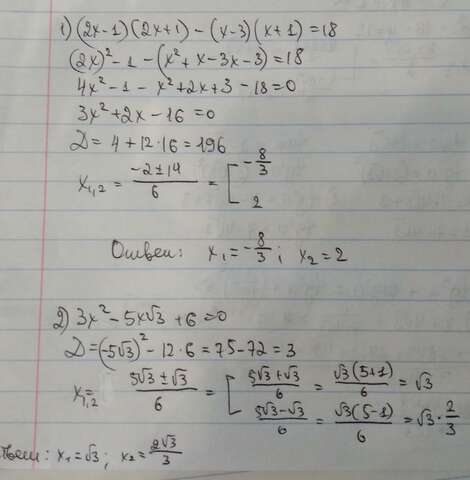 1) (2x-1)(2x+1) - (x-3)(x+1) = 18
(2x)² - 1 - (x² + x - 3x - 3) = 18
4x² - 1 - x² + 2x + 3 - 18 = 0
3x² + 2x - 16 = 0
D = 4 + 12·16 = 196
x₁,₂ = (-2 ± 14)/6 = [ -8/3
2
Ответ: x₁ = -8/3; x₂ = 2
2) 3x² - 5x√3 + 6 = 0
D = (-5√3)² - 12·6 = 75 - 72 = 3
x₁,₂ = (5√3 ± √3)/6 = [ (5√3 + √3)/6 = √3(5+1)/6 = √3
(5√3 - √3)/6 = √3(5-1)/6 = √3 · 2/3
твет: x₁ = √3; x₂ = 2√3/3